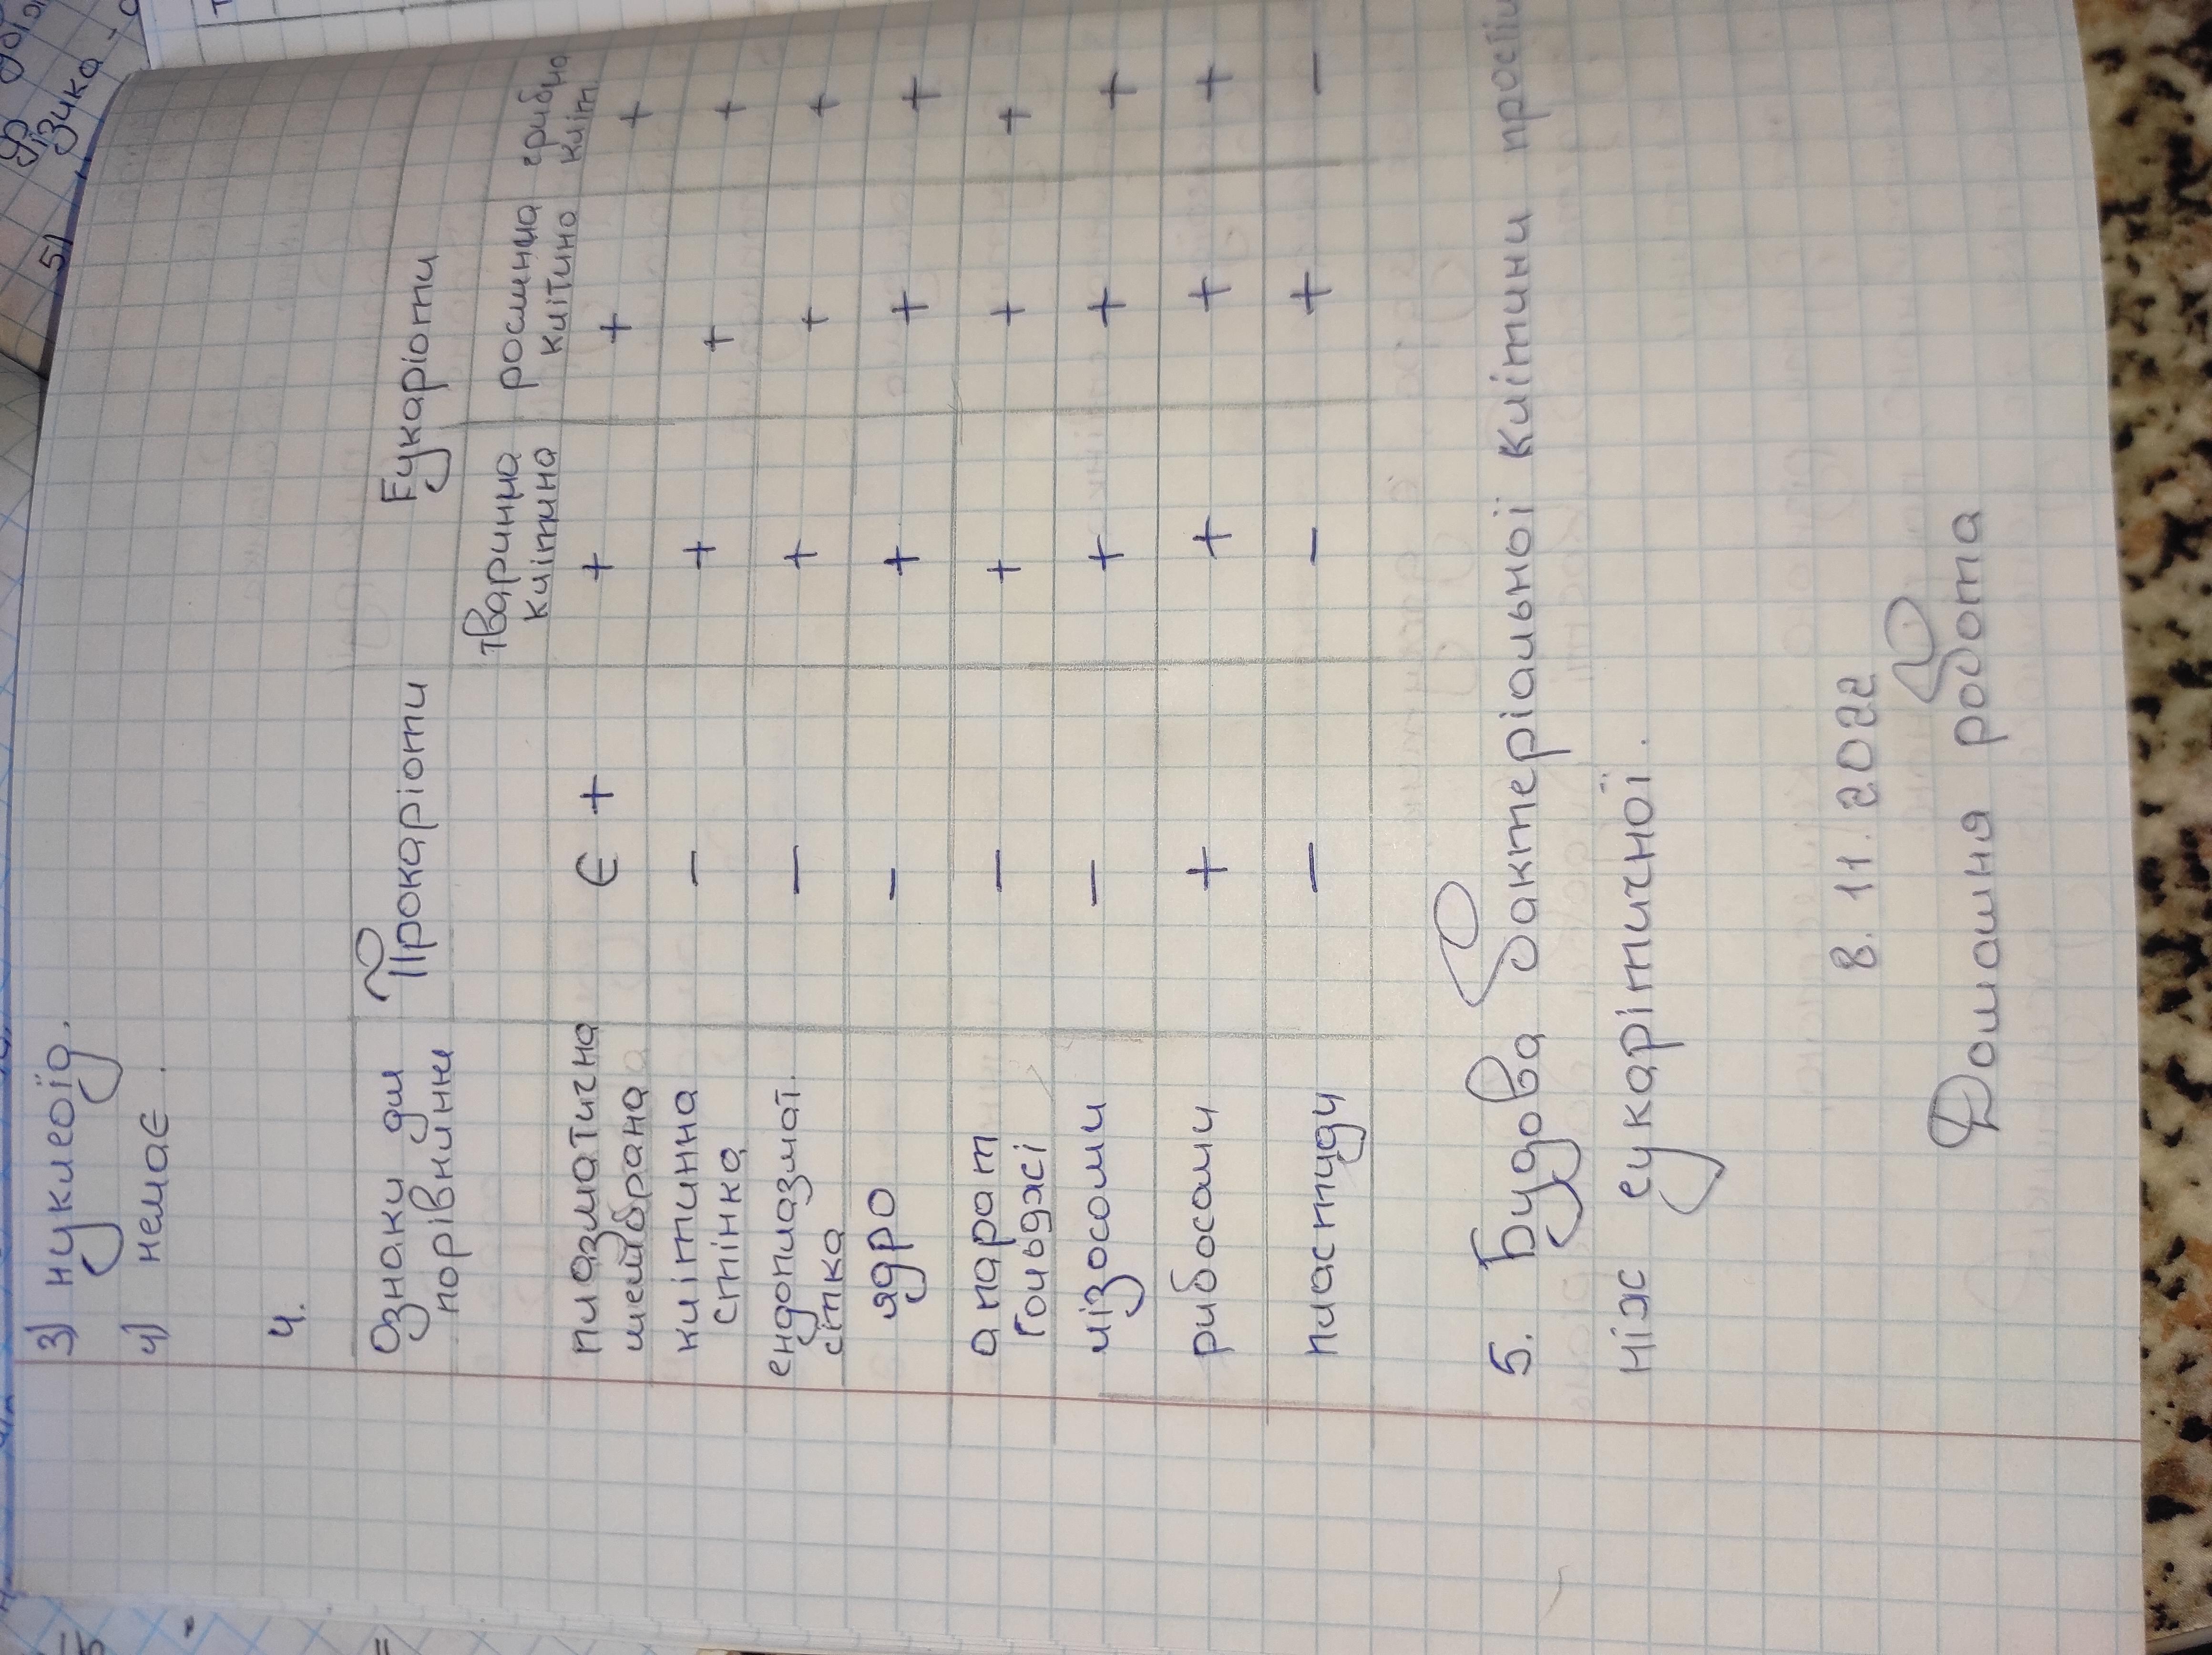 3) нуклеоїд.
4) немає.
4.
Ознаки для порівнння Прокаріоти Еукаріоти
тваринна клітина рослинна клітина грибна кліт
плазматична мембрана Є + + + +
клітинна стінка - + + +
ендоплазмат. сітка - + + +
ядро - + + +
апарат Гольджі - + + +
лізосоми - + + +
рибосоми + + + +
пластиди - - + -
5. Будова бактеріальної клітини
ніж еукарітичної.
8.11.2022
Домашня робота
фізика
51